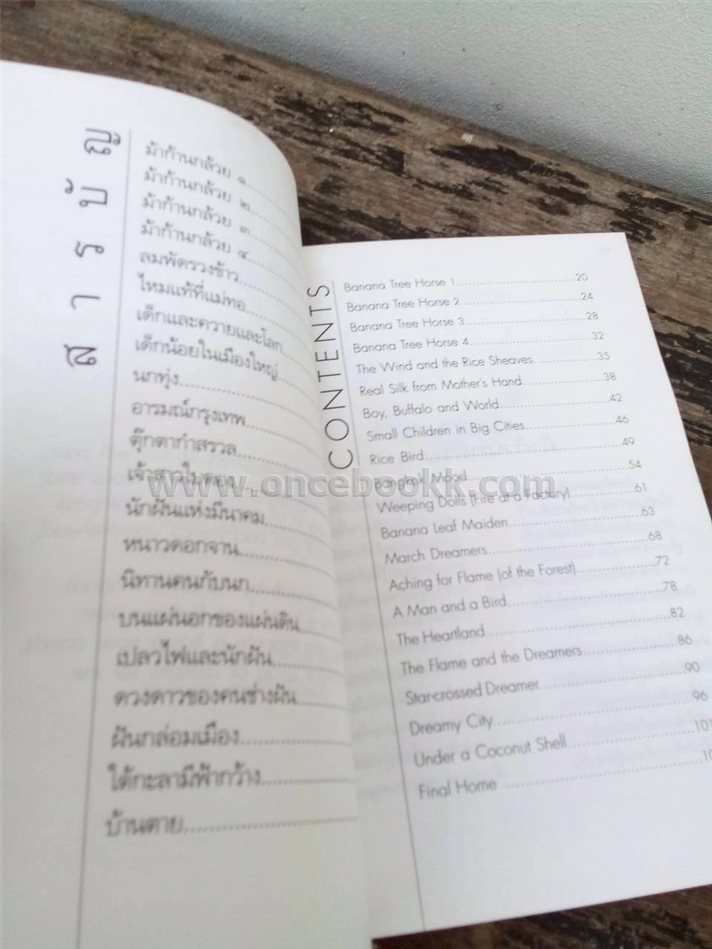 สารบัญ
ม้าก้านกล้วย ๑
ม้าก้านกล้วย ๒
ม้าก้านกล้วย ๓
ม้าก้านกล้วย ๔
ลมพัดรวงข้าว
ไหมแท้ที่แม่ทอ
เด็กและควายและโลก
เด็กน้อยในเมืองใหญ่
นกทุ่ง
อารมณ์กรุงเทพ
ตุ๊กตากำสรวล
เจ้าสาวใบตอง
นักฝันแห่งมีนาคม
หนาวดอกจาน
นิทานคนกับนก
บนแผ่นอกของแผ่นดิน
เปลวไฟและนักฝัน
ดวงดาวของคนช่างฝัน
ฝันกล่อมเมือง
ใต้กะลามีฟ้ากว้าง
บ้านตาย
CONTENTS
Banana Tree Horse 1 20
Banana Tree Horse 2 24
Banana Tree Horse 3 28
Banana Tree Horse 4 32
The Wind and the Rice Sheaves 35
Real Silk from Mother's Hand 38
Boy, Buffalo and World 42
Small Children in Big Cities 46
Rice Bird 49
Bangkok Mood 54
Weeping Dolls (Fire at a Factory) 61
Banana Leaf Maiden 63
March Dreamers 68
Aching for Flame (of the Forest) 72
A Man and a Bird 78
The Heartland 82
The Flame and the Dreamers 86
Star-crossed Dreamer 90
Dreamy City 96
Under a Coconut Shell 101
Final Home
www.oncebookk.com